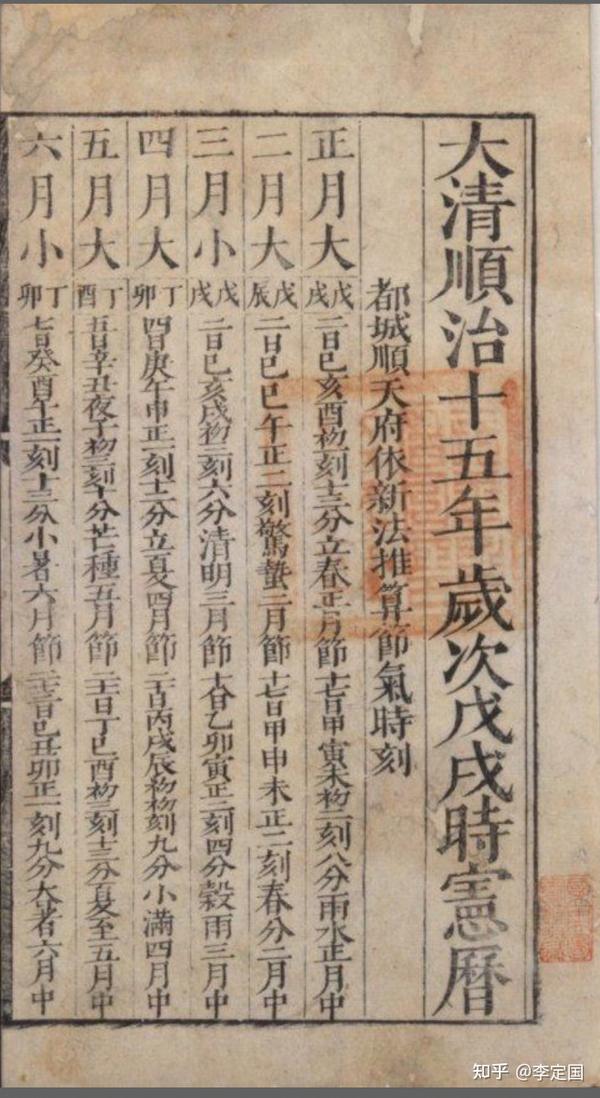 大清順治十五年歲次戊戌時憲曆
都城順天府依新法推算節氣時刻
正月大 戊戌 二日己亥酉初一刻十三分立春正月節 十七日甲寅未初二刻八分雨水正月中
二月大 戊辰 二日己巳午正二刻驚蟄二月節 十七日甲申未正二刻春分二月中
三月小 戊戌 二日己亥戌初二刻六分清明三月節 十八日乙卯寅正三刻四分穀雨三月中
四月大 丁卯 四日庚午申正一刻十二分立夏四月節 二十日丙戌辰初初刻九分小滿四月中
五月大 丁酉 五日辛丑夜子初三刻十分芒種五月節 二十一日丁巳酉初三刻十三分夏至五月中
六月小 丁卯 七日癸酉午正一刻十三分小暑六月節 二十三日己丑卯正一刻九分大暑六月中
知乎 @李定国